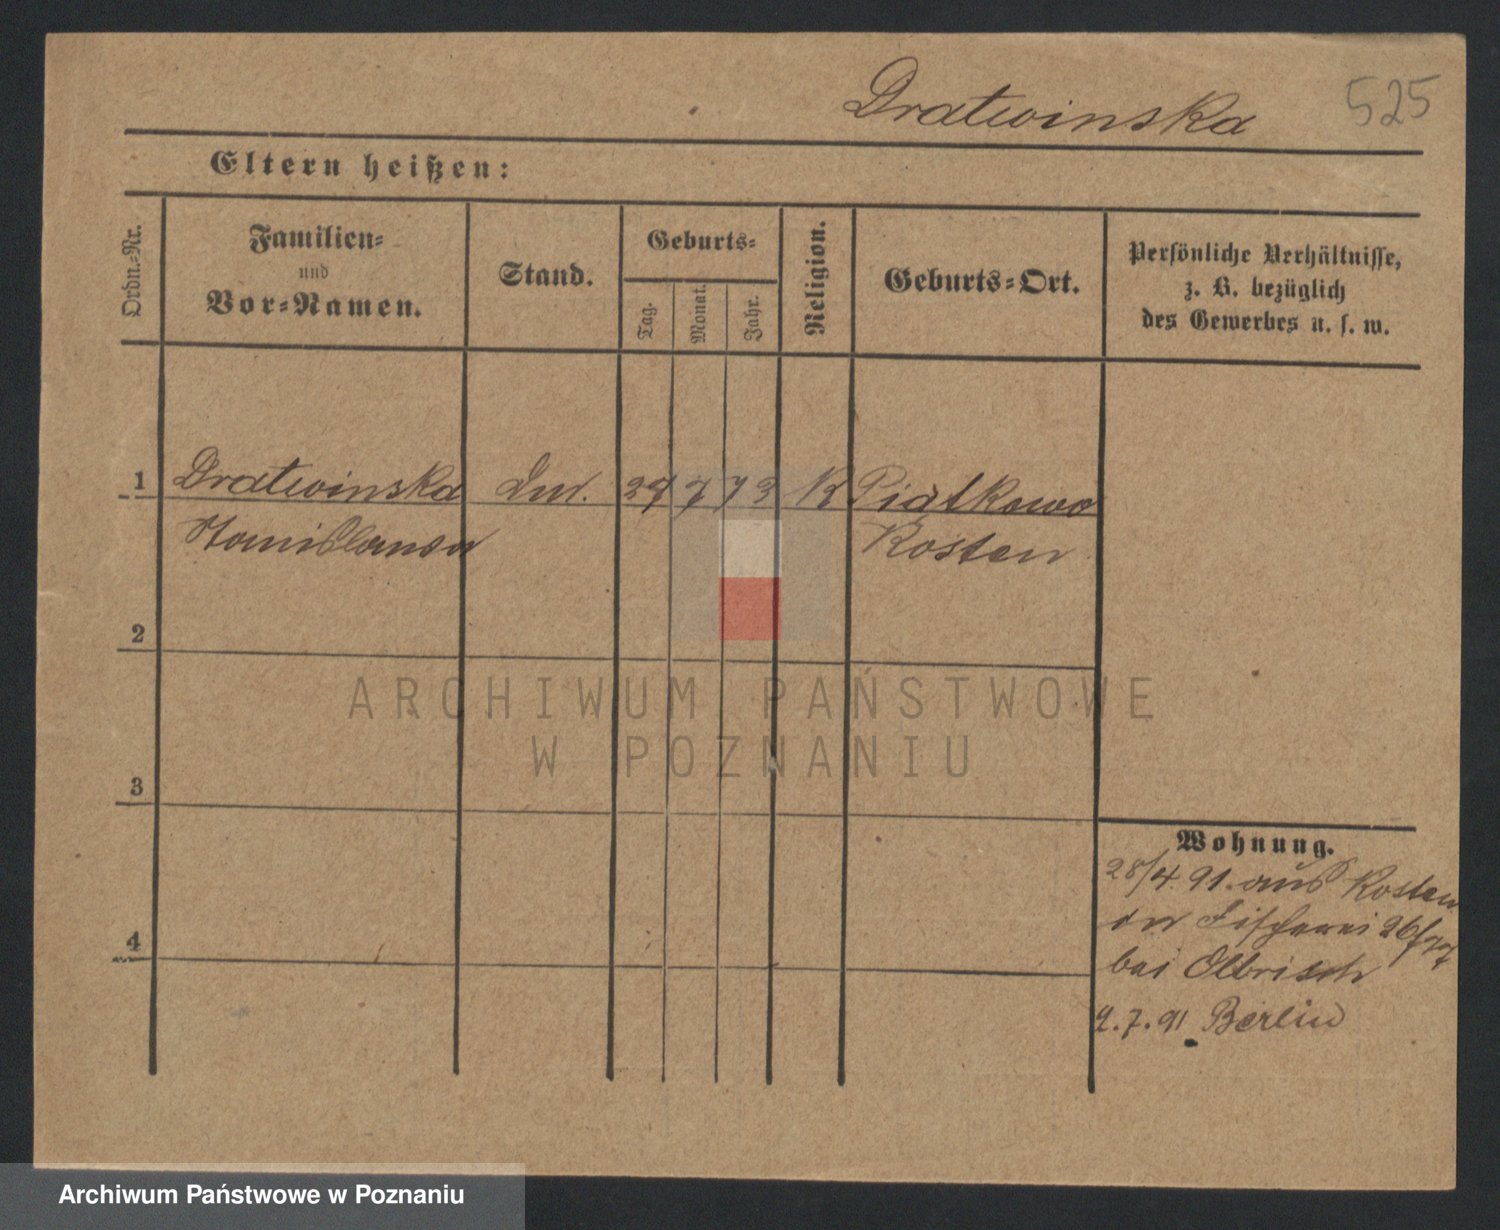 Dratwinska
525
Eltern heißen:
Ordn.-Nr.
Familien-
und
Vor-Namen.
Stand.
Geburts-
Tag.
Monat.
Jahr.
Religion.
Geburts-Ort.
Persönliche Verhältnisse,
z. B. bezüglich
des Gewerbes u. s. w.
1 Dratwinska 27 7 73 K Piatkowo
Stanislawa Kosten
2
3
4
Wohnung.
28/4. 91. aus Kosten
Fischerei 26/
bei Olbrisch
2. 7. 91 Berlin
ARCHIWUM PAŃSTWOWE
W POZNANIU
Archiwum Państwowe w Poznaniu